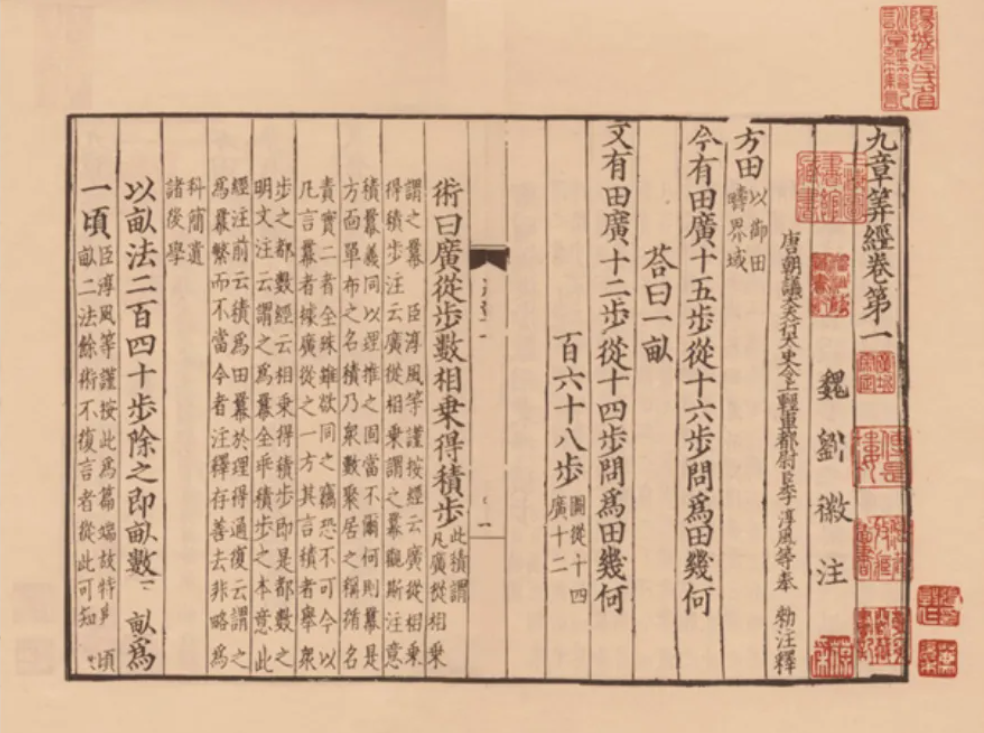 九章筭經卷第一
魏劉徽注
唐朝議大夫行太史令上輕車都尉臣李淳風等奉 勑注釋
方田
以御田
疇界域
今有田廣十五步從十六步問爲田幾何
荅曰一畝
又有田廣十二步從十四步問爲田幾何
百六十八步
圖從十四
廣十二
術曰廣從步數相乘得積步
此積謂
凡廣從相乘
謂之冪 臣淳風等謹按經云廣從相乘
得積步注云廣從相乘謂之冪觀斯注意
積冪義同以理推之固當不爾何則冪是
方面單布之名積乃衆數聚居之稱循名
責實二者全殊雖欲同之竊恐不可今以
凡言冪者據廣從之一方其言積者舉衆
步之都數經云相乘得積步即是都數之
明文注云謂之爲冪全乖積步之本意此
經注前云積爲田冪於理得通復云謂之
爲冪繁而不當今者注釋存善去非略爲
科簡遺
諸後學
以畝法二百四十步除之即畝數 畝爲
一頃
臣淳風等謹按此爲篇端故特 頃
畝二法餘術不復言者從此可知